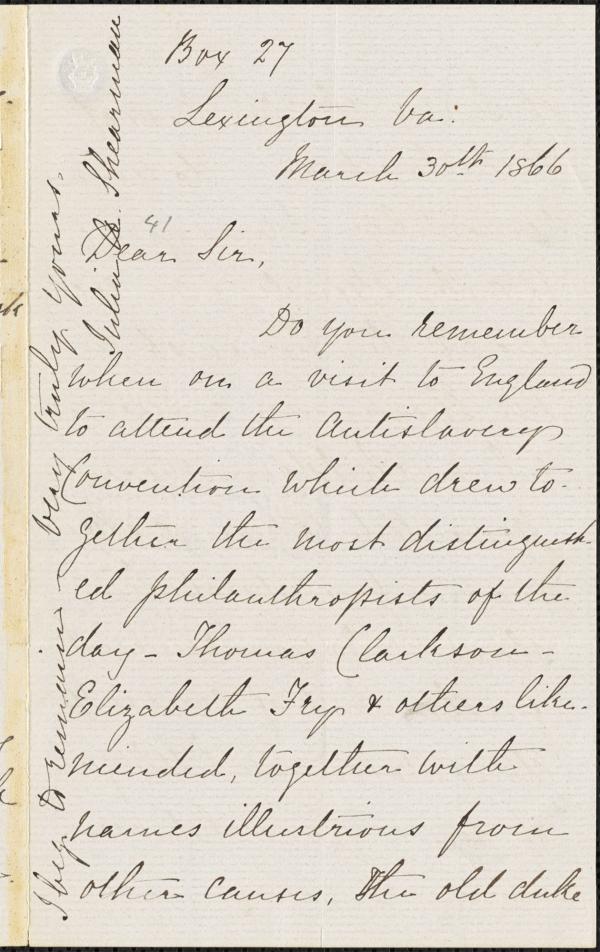 Box 27
Lexington Va.
March 30th 1866
41
Dear Sir,
Do you remember
when on a visit to England
to attend the Antislavery
Convention which drew to-
gether the most distinguish-
ed philanthropists of the
day - Thomas Clarkson -
Elizabeth Fry & others like-
minded, together with
names illustrious from
other causes, The old duke
I beg to remain - very truly yours,
Julia Shearman